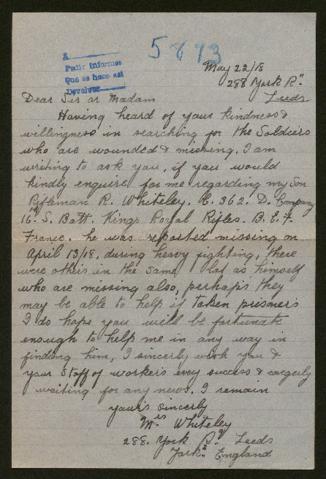 5893
A
Pedir informes
Que se hace asi
Devolver
May 22/18
288 York Rd
Leeds
Dear Sir or Madam
Having heard of your kindness &
willingness in searching for the Soldiers
who are wounded & missing, I am
writing to ask you, if you would
kindly enquire for me regarding my Son
Rifleman R. Whiteley. C. 362. D. Company
16th S. Batt. Kings Royal Rifles. B. E. F.
France. he was reported missing on
April 13/18, during heavy fighting, there
were others in the same Plat as himself
who are missing also, perhaps they
may be able to help if taken prisners
I do hope you will be fortunate
enough to help me in any way in
finding him, I sincerely wish you &
your Staff of workers evry success & eargerly
waiting for any news. I remain
your's sincerly
Mrs Whiteley
288. York Rd Leeds
Yorks England